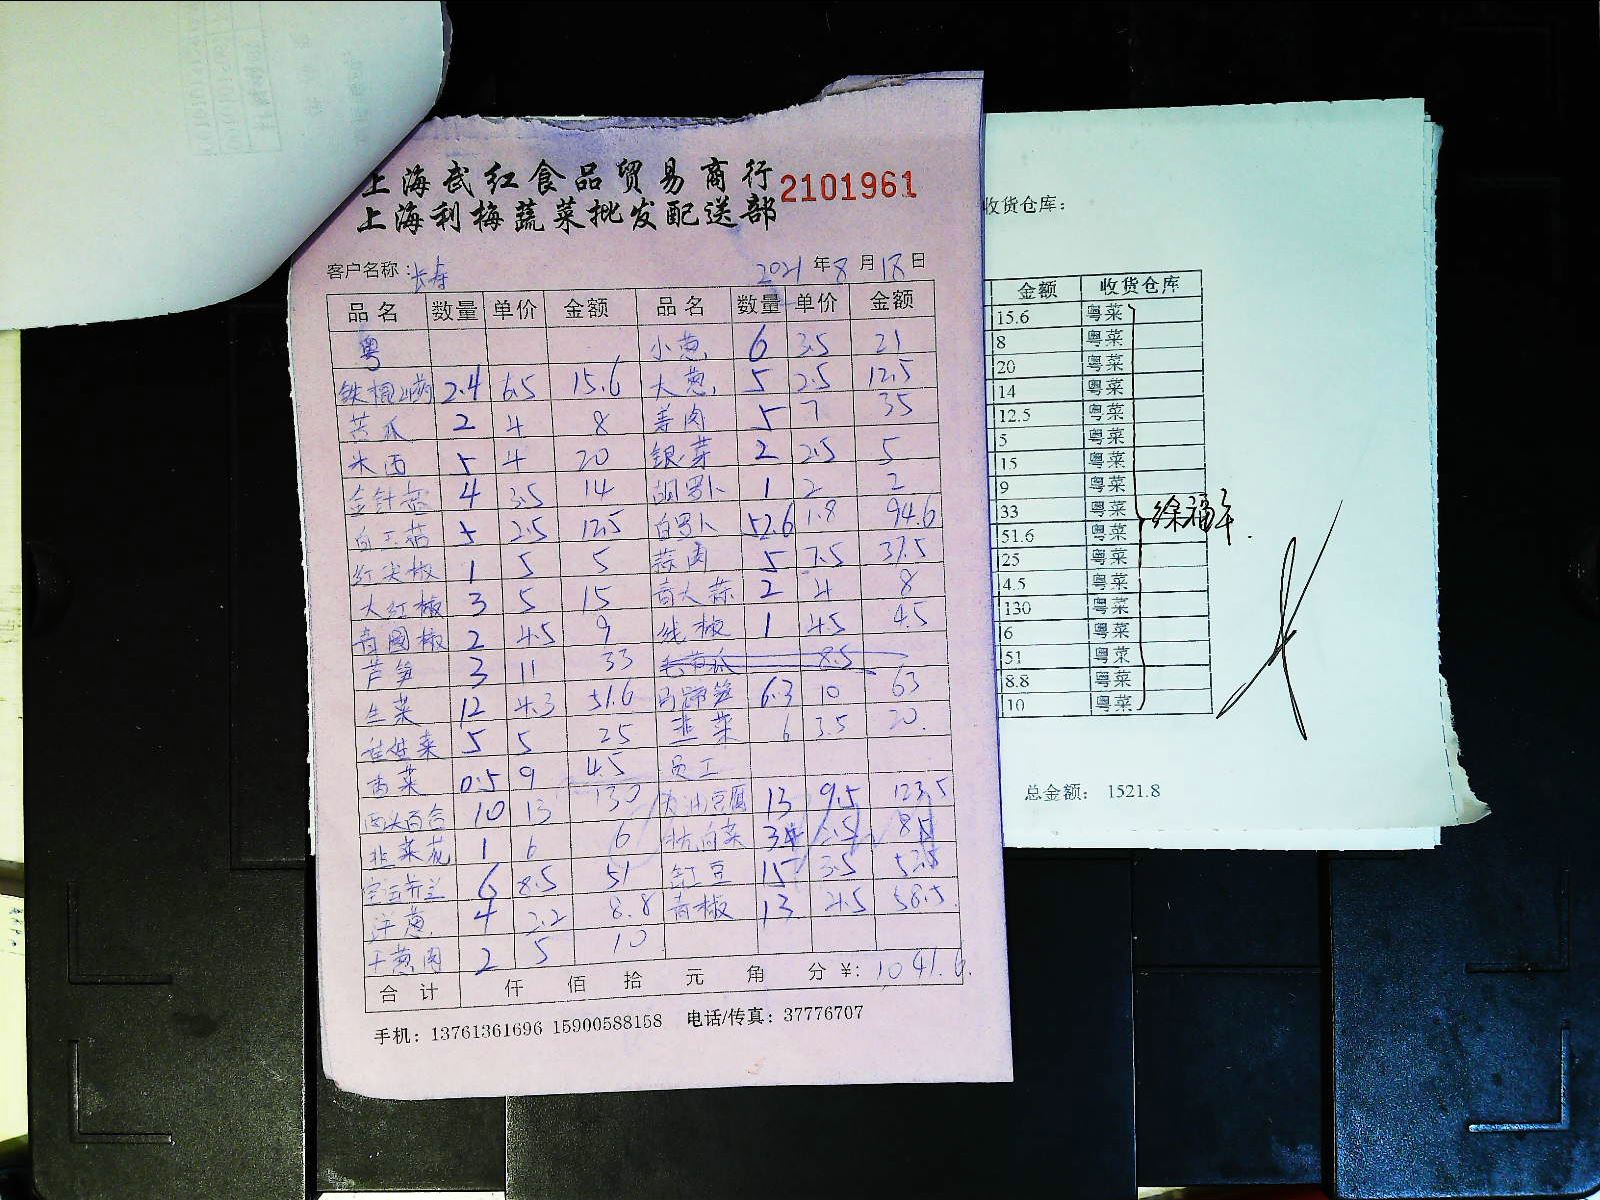 上海武红食品贸易商行
上海利梅蔬菜批发配送部
2101961
客户名称：长寿 2021年8月18日
品名 数量 单价 金额 品名 数量 单价 金额
粤 小葱 6 3.5 21
铁棍山药 2.4 6.5 15.6 大葱 5 2.5 12.5
苦瓜 2 4 8 姜肉 5 7 35
米西 5 4 20 银芽 2 2.5 5
金针菇 4 3.5 14 胡罗卜 1 2 2
白玉菇 5 2.5 12.5 白罗卜 52.6 1.8 94.6
红尖椒 1 5 5 蒜肉 5 7.5 37.5
大红椒 3 5 15 青大蒜 2 4 8
青圆椒 2 4.5 9 线椒 1 4.5 4.5
芦笋 3 11 33 8.5
生菜 12 4.3 51.6 马蹄笋 6.3 10 63
5 5 25 韭菜 6 3.5 20.
香菜 0.5 9 4.5 员工
西头百合 10 13 130 油豆腐 13 9.5 123.5
韭菜花 1 6 6 杭白菜 34 2.5 85
6 8.5 51 豇豆 15 3.5 52.5
洋葱 4 2.2 8.8 青椒 13 4.5 58.5
干葱肉 2 5 10
合计 仟 佰 拾 元 角 分 ¥: 1041.6
手机：13761361696 15900588158 电话/传真：37776707
收货仓库：
金额 收货仓库
15.6 粤菜
8 粤菜
20 粤菜
14 粤菜
12.5 粤菜
5 粤菜
15 粤菜
9 粤菜
33 粤菜
51.6 粤菜
25 粤菜
4.5 粤菜
130 粤菜
6 粤菜
51 粤菜
8.8 粤菜
10 粤菜
徐福年
总金额： 1521.8